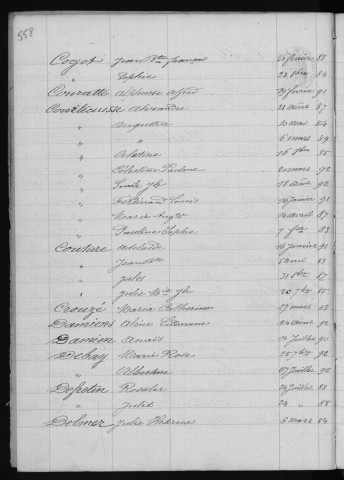 558
Coyot Jean Bte François 20 février 88
" Sophie 22 8bre 84
Couratte Alphonse Alfred 19 février 91
Courtecuisse Alexandre 21 août 87
" Augustine 20 mai 84
" " 6 mars 89
" Clotine 16 9bre 85
" Célestine Pauline 20 mars 92
" Emile Jh 18 août 92
" Fernand Louis 16 janvier 91
" Marie 14 avril 87
" Pauline Sophie 7 9bre 83
Couture Adélaïde 16 janvier 91
" Jean Bte 5 avril 83
" Jules 31 8bre 87
" Julie Mie Jh 20 7bre 85
Crouzé Maria Catherine 17 mars 83
Damiens Aline 24 août 92
Damien Anaïs 13 juillet 90
Dehay Marie Rose 25 7bre 92
" Albertine 07 juillet 92
Depetin Rosalie 24 juillet 88
" Jules 24 " 88
Dolmer Julie 5 mars 84